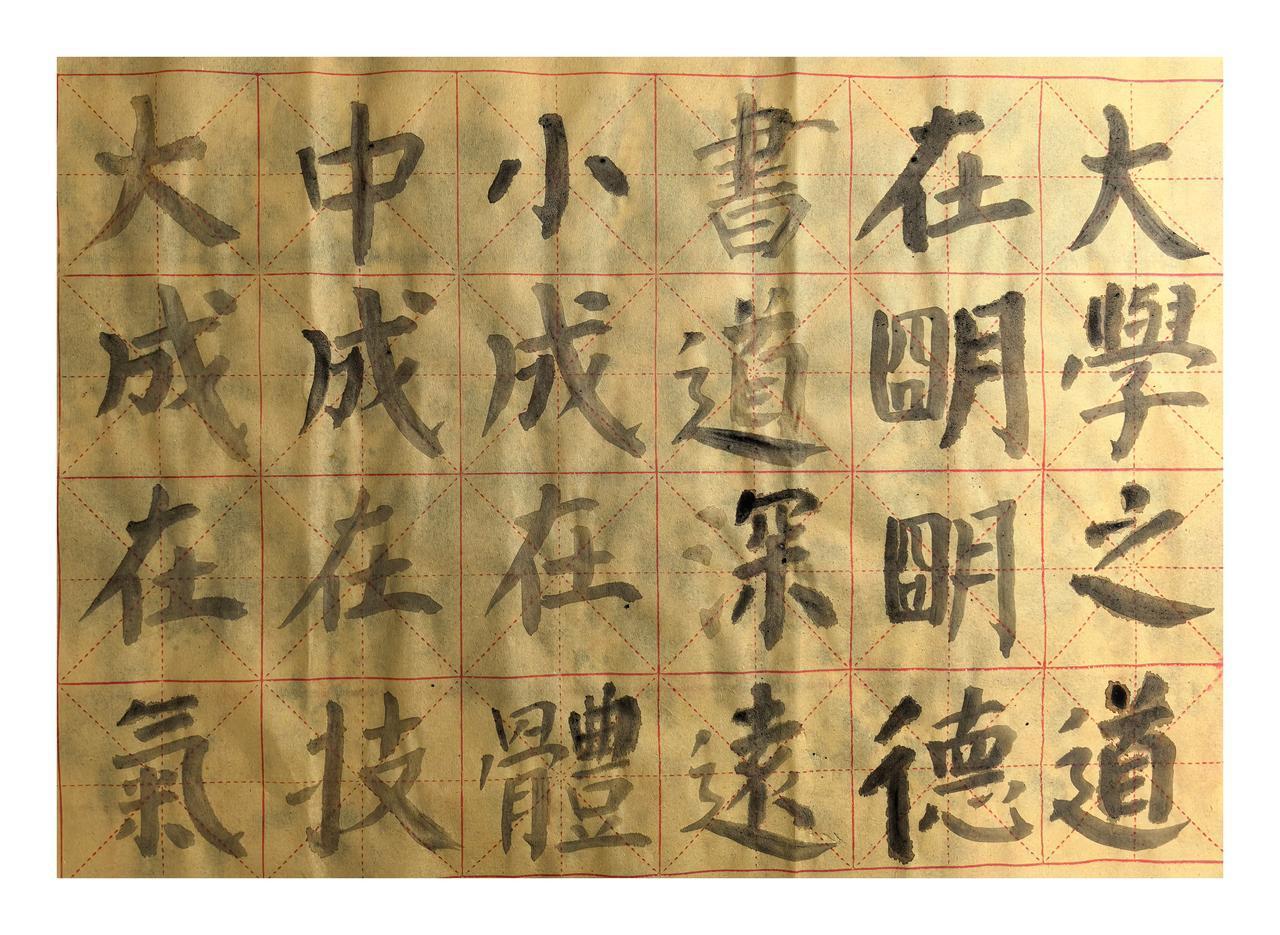 大學之道
在明明德
書道深遠
小成在體
中成在技
大成在氣